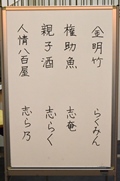 金明竹 らくみん
権助魚 志奄
親子酒 志らく
人情八百屋 志ら乃